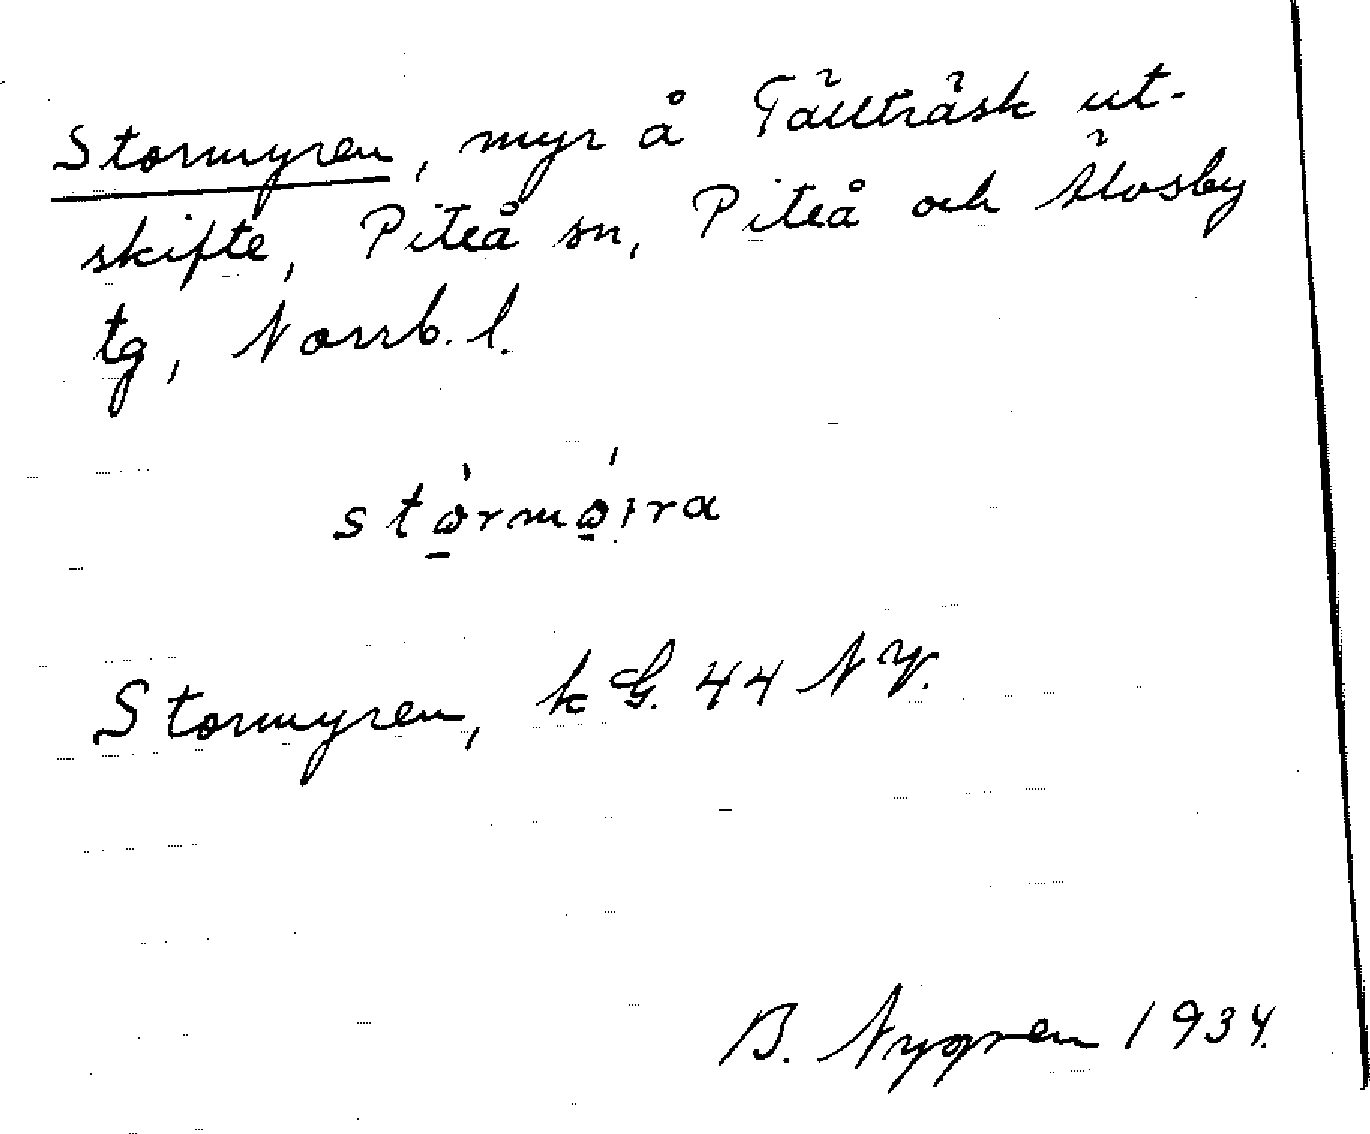 Stormyren, myr å Tällträsk ut-
skifte, Piteå sn, Piteå och Älvsby
tg, Norrb. l.
størmøira
Stormyren, k G. 44 NV.
B. Nygren 1934.